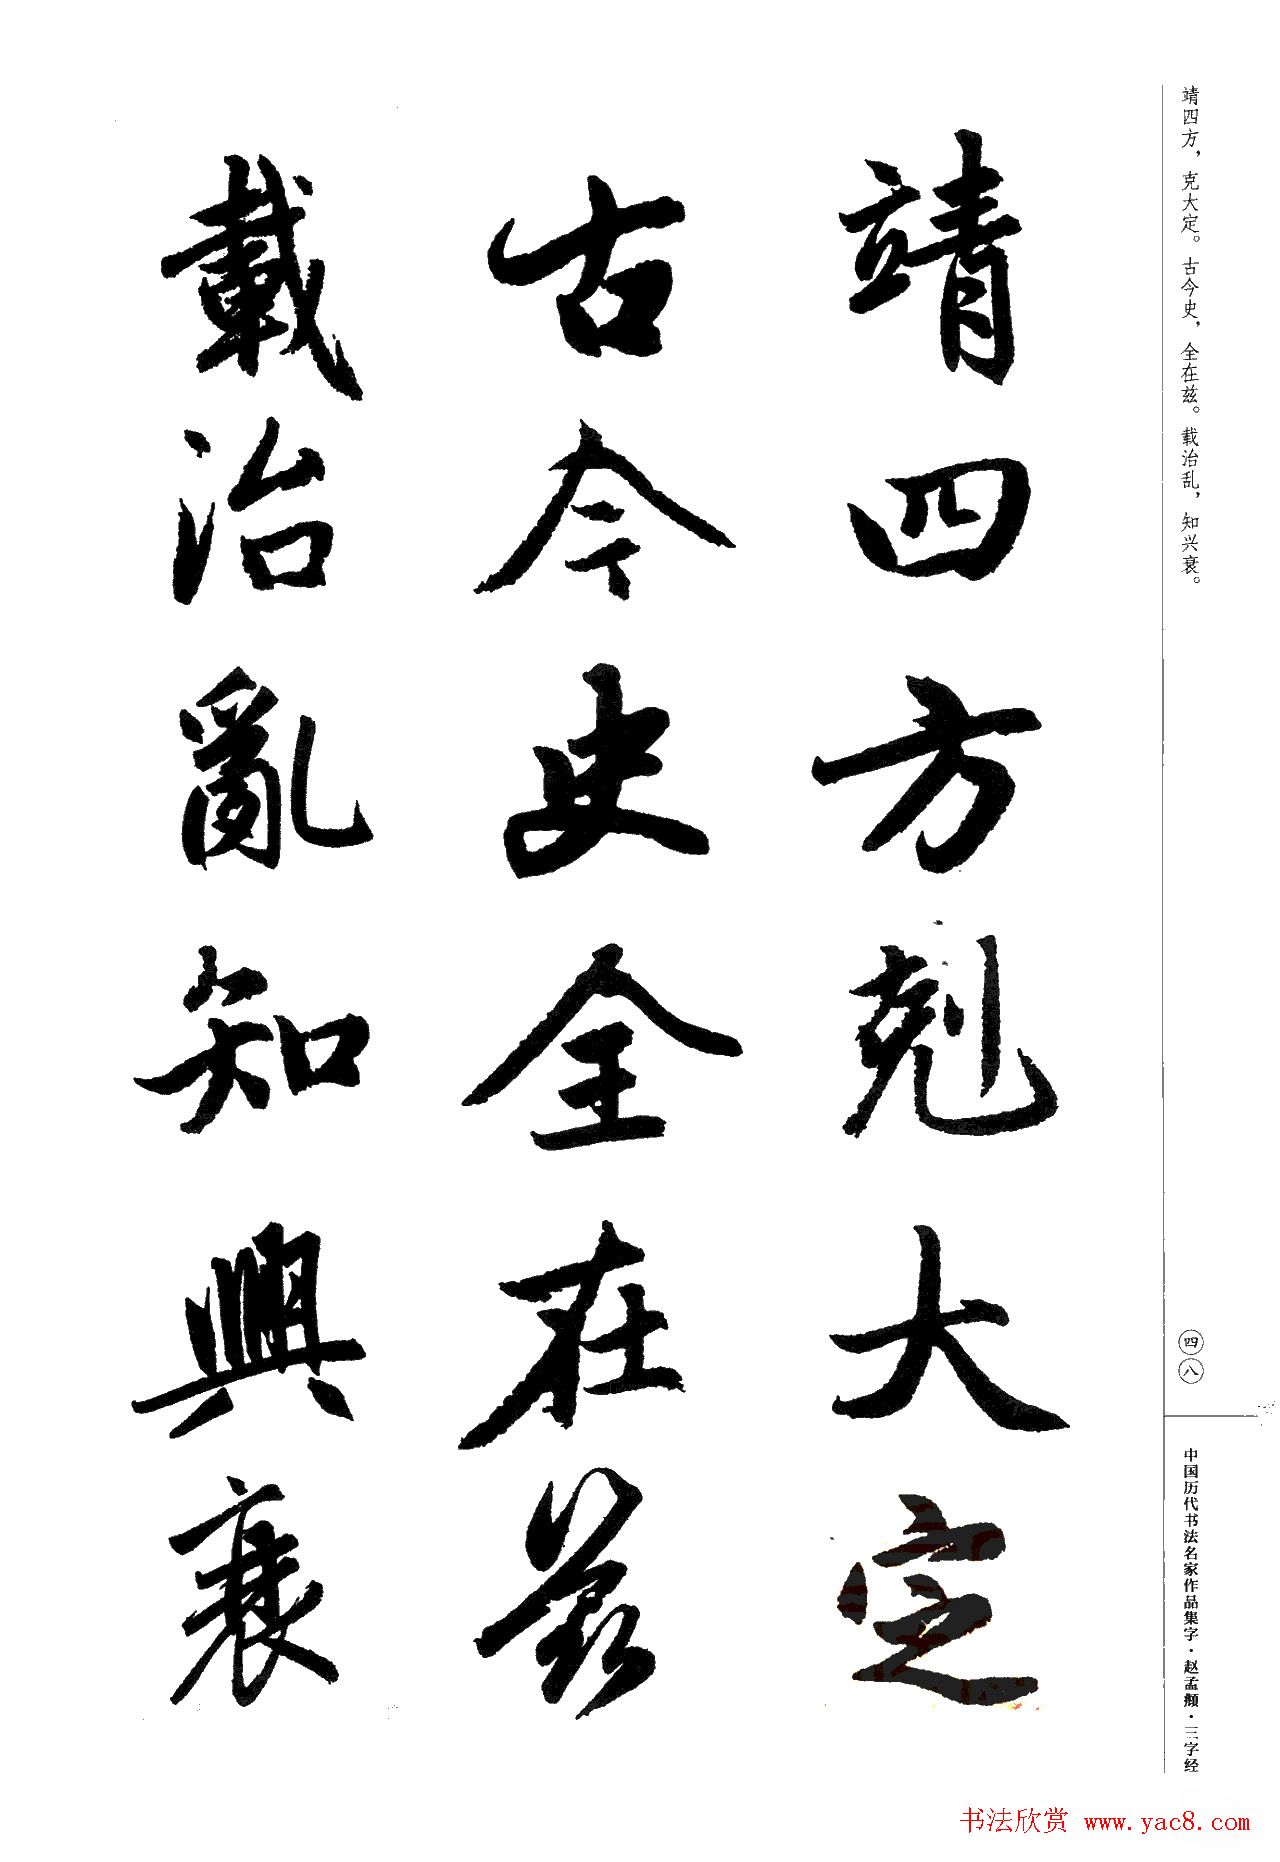 靖四方，克大定。古今史，全在兹。载治乱，知兴衰。
靖四方剋大定
古今史全在茲
載治亂知興衰
四八
中国历代书法名家作品集字·赵孟頫·三字经
书法欣赏 www.yac8.com